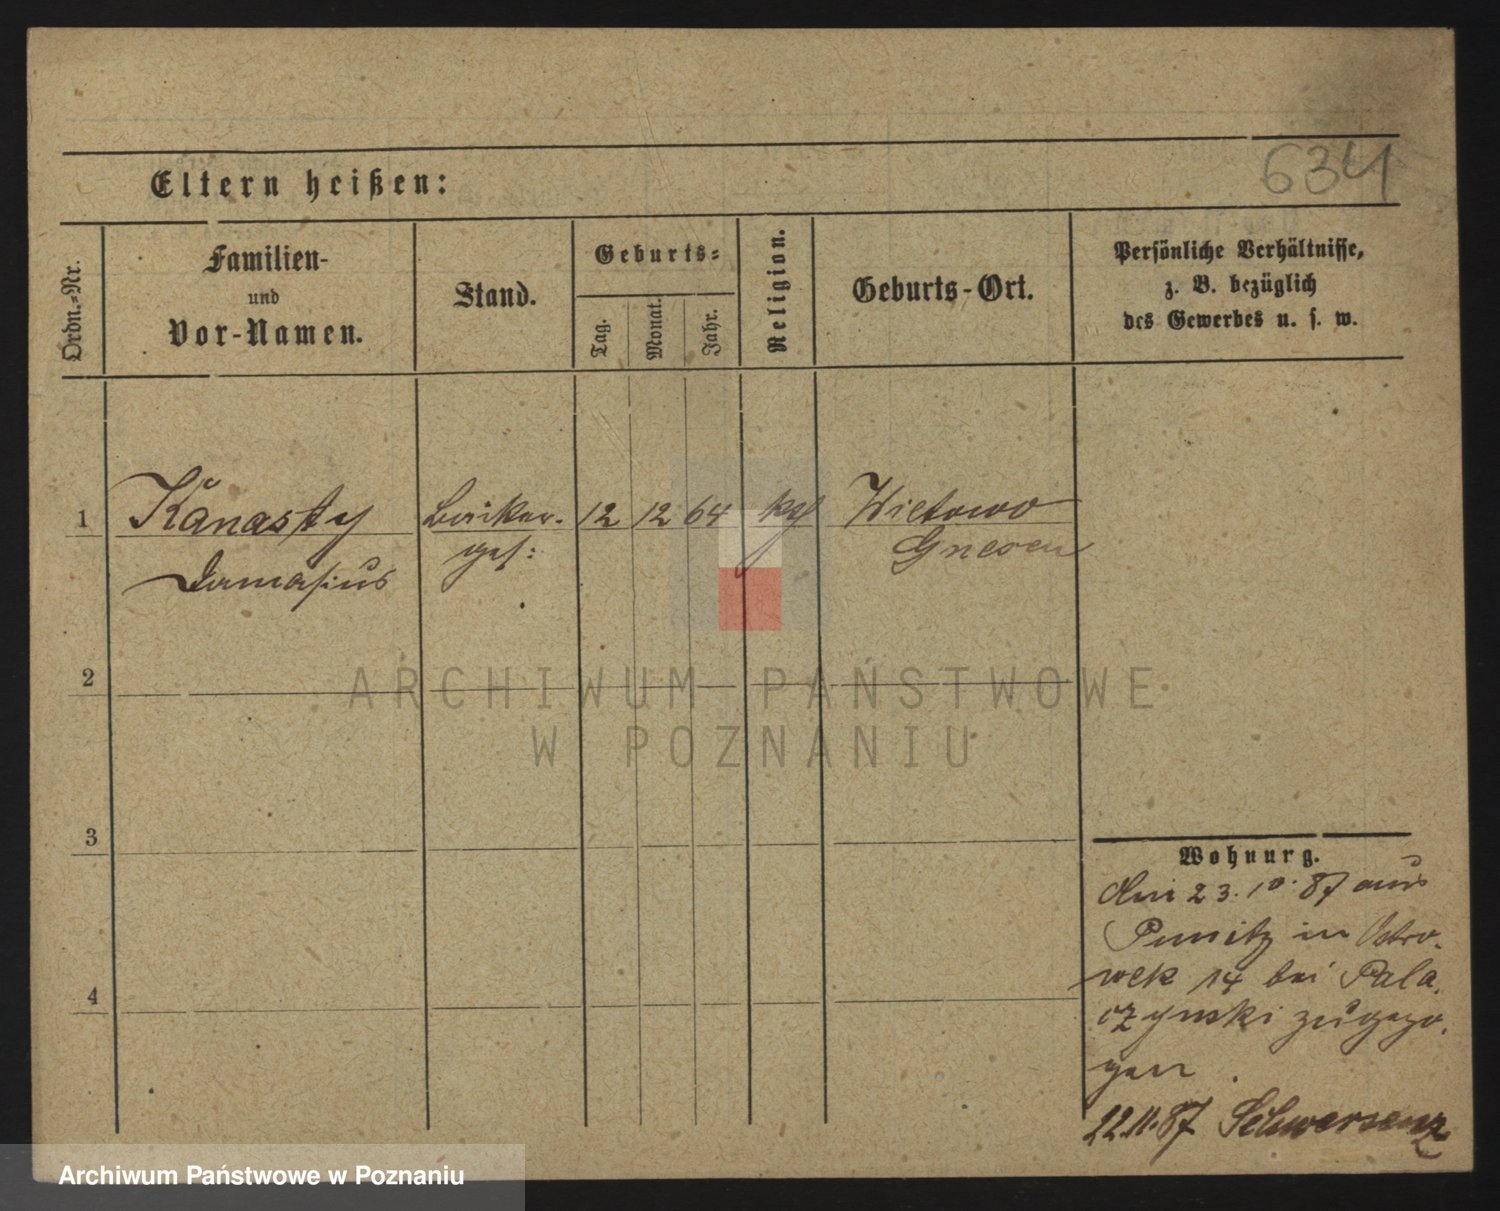 634
Eltern heißen:
Ordn.-Nr.
Familien-
und
Vor-Namen.
Stand.
Geburts-
Tag.
Monat.
Jahr.
Religion.
Geburts-Ort.
Persönliche Verhältnisse,
z. B. bezüglich
des Gewerbes u. s. w.
1
Kanasty
Damasius
ges:
12 12 64
Gnesen
2
ARCHIWUM PAŃSTWOWE
W POZNANIU
3
Wohnung.
23. 10. 87 aus
Punitz in Ostro-
wek 14 bei Pala-
czynski zugezo-
gen.
22.11.87 Schwersenz
4
Archiwum Państwowe w Poznaniu